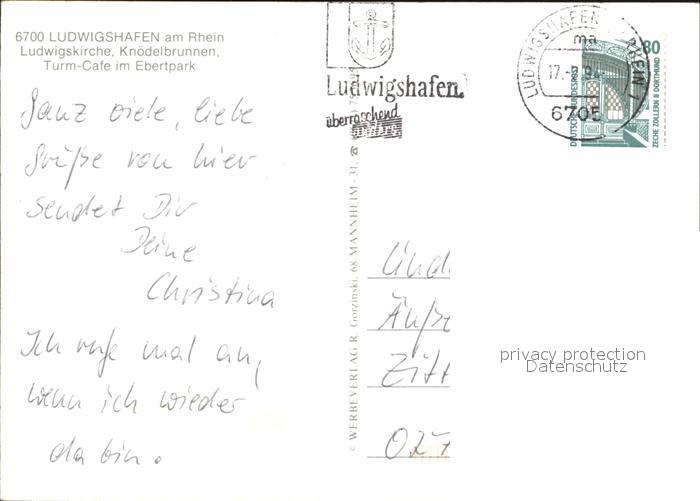 6700 LUDWIGSHAFEN am Rhein
Ludwigskirche, Knödelbrunnen,
Turm-Cafe im Ebertpark
Ganz viele, liebe
Grüße von hier
sendet Dir
Deine
Christina
Ich rufe mal an,
wenn ich wieder
da bin.
© WERBEVERLAG R. Gorzinski, 68 MANNHEIM-31
Ludwigshafen.
überraschend
LUDWIGSHAFEN RHEIN
ma
17.-
6705
80
DEUTSCHE BUNDESPOST
ZECHE ZOLLERN II DORTMUND
Äuße
Zitt
027
privacy protection
Datenschutz